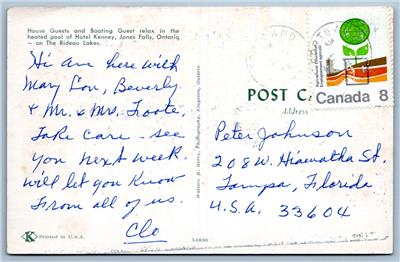 House Guests and Boating Guest relax in the
heated pool of Hotel Kenney, Jones Falls, Ontario
— on The Rideau Lakes.
Hi Am here with
Mary Lou, Beverly
& Mr. & Mrs. Foote.
Take care - see
you next week.
will let you know
From all of us.
Clo
K Printed in U.S.A.
54836
POST C
Address
Canada 8
Peter Johnson
208 W. Hiawatha St.
Tampa, Florida
U.S.A. 33604